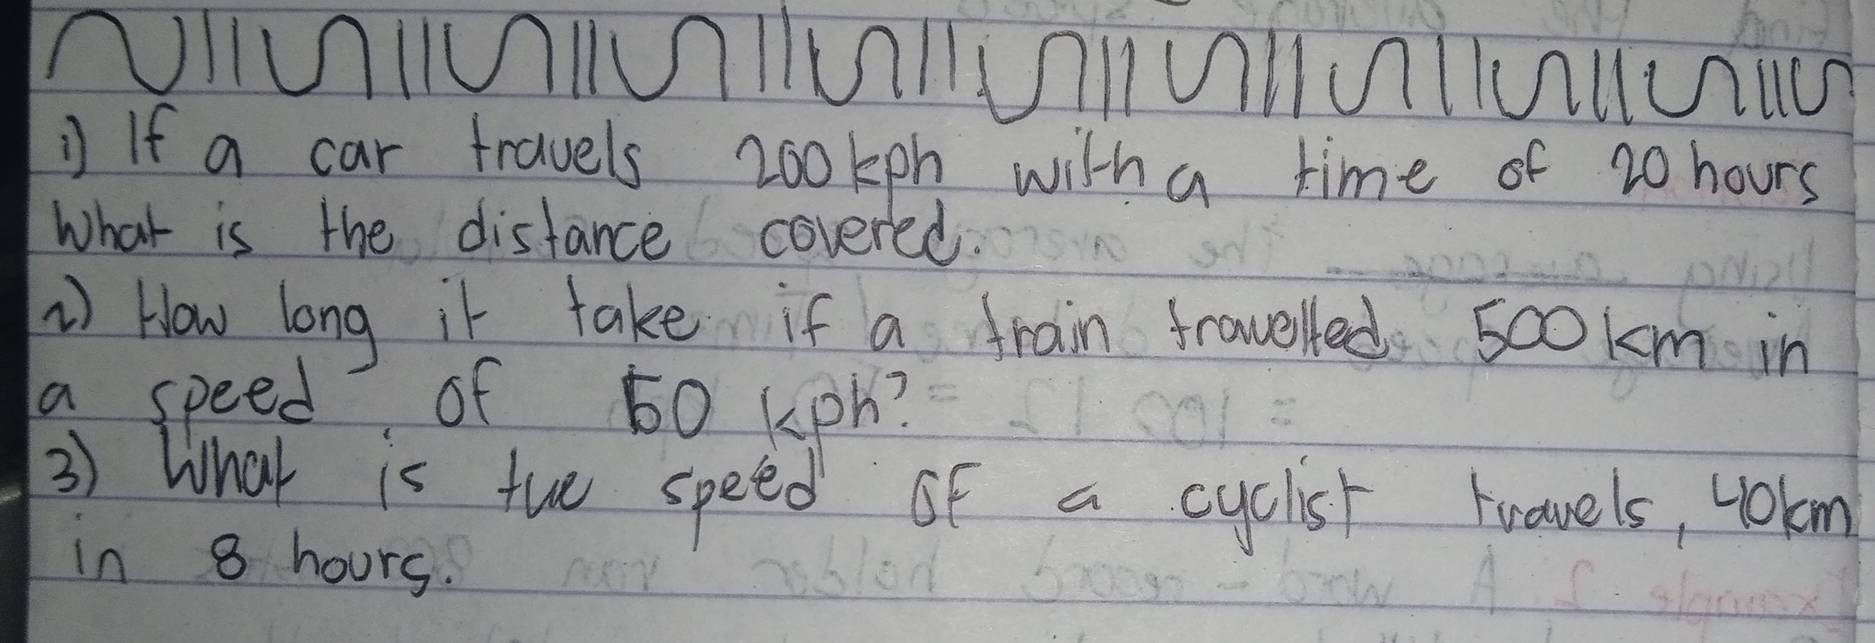 1) If a car travels 200kph with a time of 20 hours
What is the distance covered.
2) How long it take if a train travelled 500km in
a speed of 50 kph?
3) What is tue speed of a cyclist travels, 40km
in 8 hours.